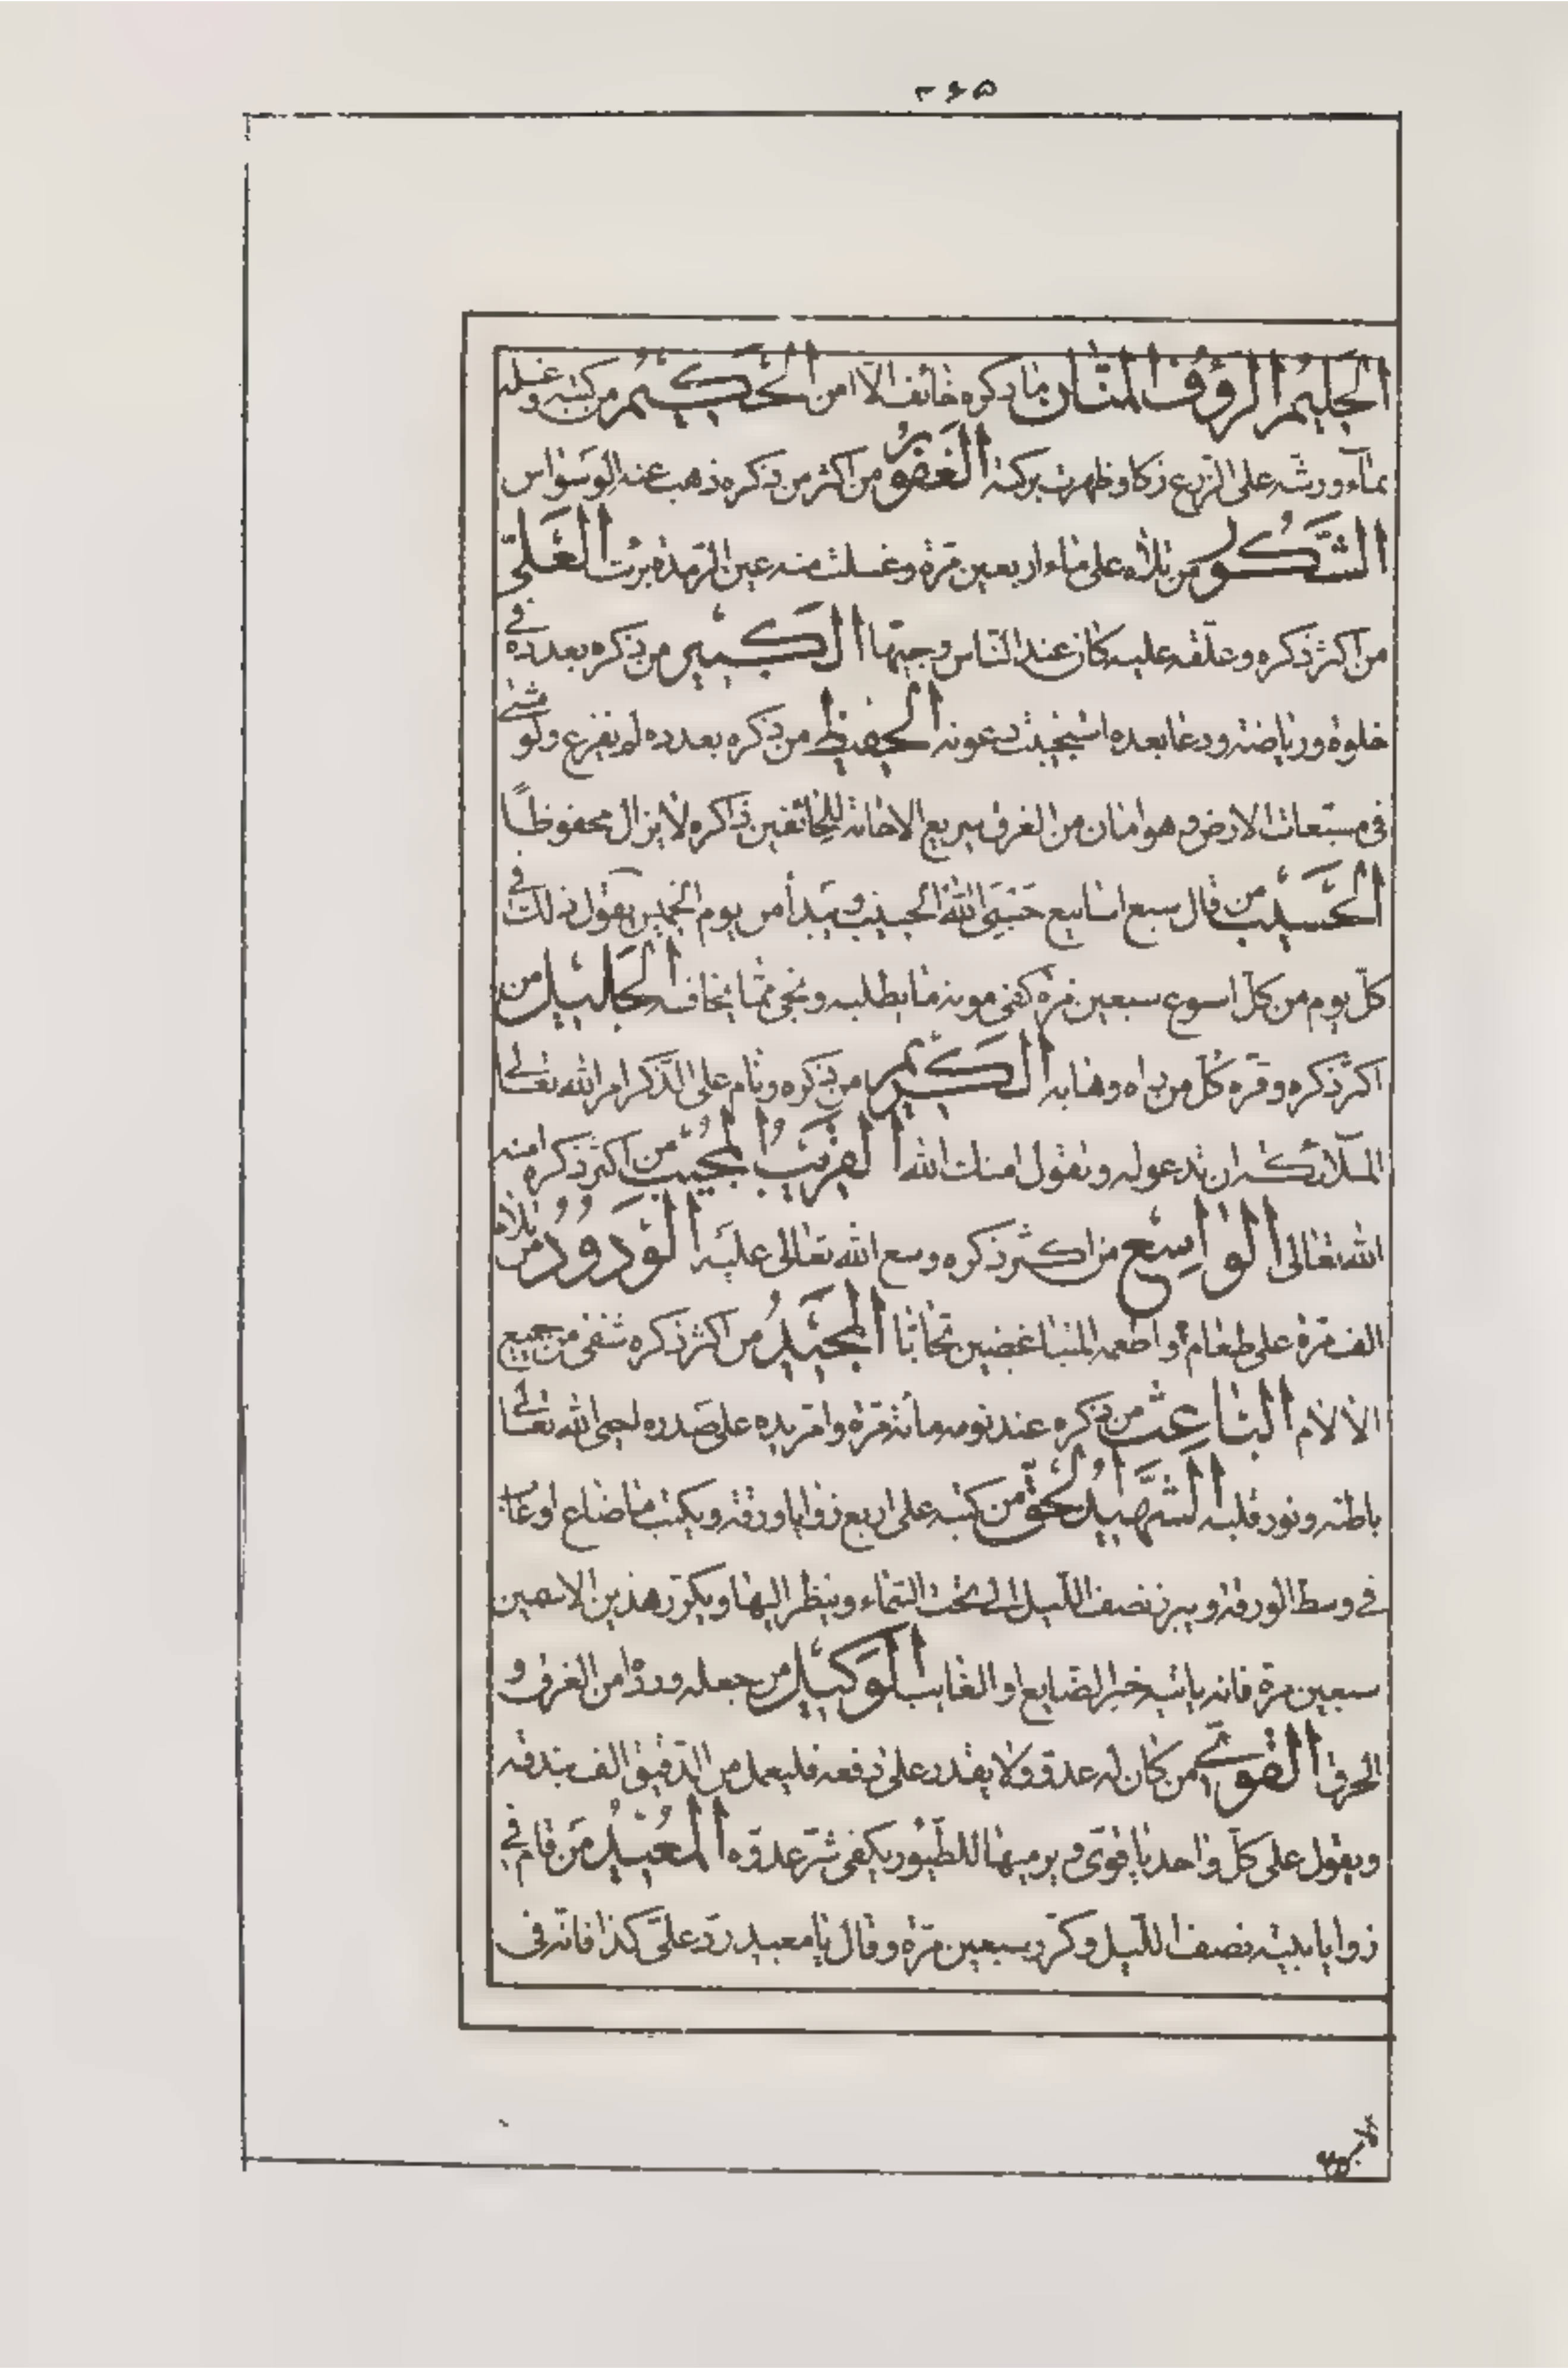 ٢۶۵
الحليم الرؤف المنان ما ذكره خائف الا امن الحكيم من كتبه وغسله
بماء ورشه على الزرع زكا وظهرت بركته الغفور من اكثر من ذكره ذهب عنه الوسواس
الشكور من تلاه على ماء اربعين مرة وغسلت منه عين الرمدة برئت العلى
من اكثر ذكره وعلقه عليه كان عند الناس وجيها الكبير من ذكره بعدده فى
خلوة ورياضة ودعا بعده استجيبت دعوته الحفيظ من ذكره بعدده لم يفزع ولو مشى
فى مسبعات الارض وهو امان من الغرق سريع الاجابة للخائفين ذاكره لا يزال محفوظًا
الحسيب من قال سبع اسابيع حَسْبِىَ اللهُ الحسيب ويبدأ من يوم الخميس يقول ذلك فى
كل يوم من كل اسبوع سبعين مرة كفى مونة ما يطلبه ونجى مما يخافه الجليل من
اكثر ذكره وقره كل من يراه وهابه الكريم من ذكره ونام على الذكر امر الله تعالى
الملائكة ان تدعو له وتقول امنك الله القريب المجيب من اكثر ذكره امنه
الله تعالى الواسع من اكثر ذكره وسع الله تعالى عليه الودود من تلاه
الف مرة على طعام واطعمه المتباغضين تحابا المجيد من اكثر ذكره شفى من جميع
الالام الباعث من ذكره عند نومه مائة مرة وامر يده على صدره احيى الله تعالى
باطنه ونور قلبه الشهيد الحق من كتبه على اربع زوايا ورقة ويكتب ما ضاع او غاب
فى وسط الورقة ويبرز نصف الليل الى تحت السماء وينظر اليها ويكرر هذين الاسمين
سبعين مرة فانه ياتيه خبر الضايع او الغايب الوكيل من جعله وردا من الغرق و
الحرق القوى من كان له عدو ولا يقدر على دفعه فليعمل من الدقيق الف بندقة
ويقول على كل واحد يا قوى ويرميها للطيور يكفى شر عدوه المعيد من قام فى
زوايا بيته نصف الليل وكرر سبعين مرة وقال يا معيد رد على كذا فانه فى